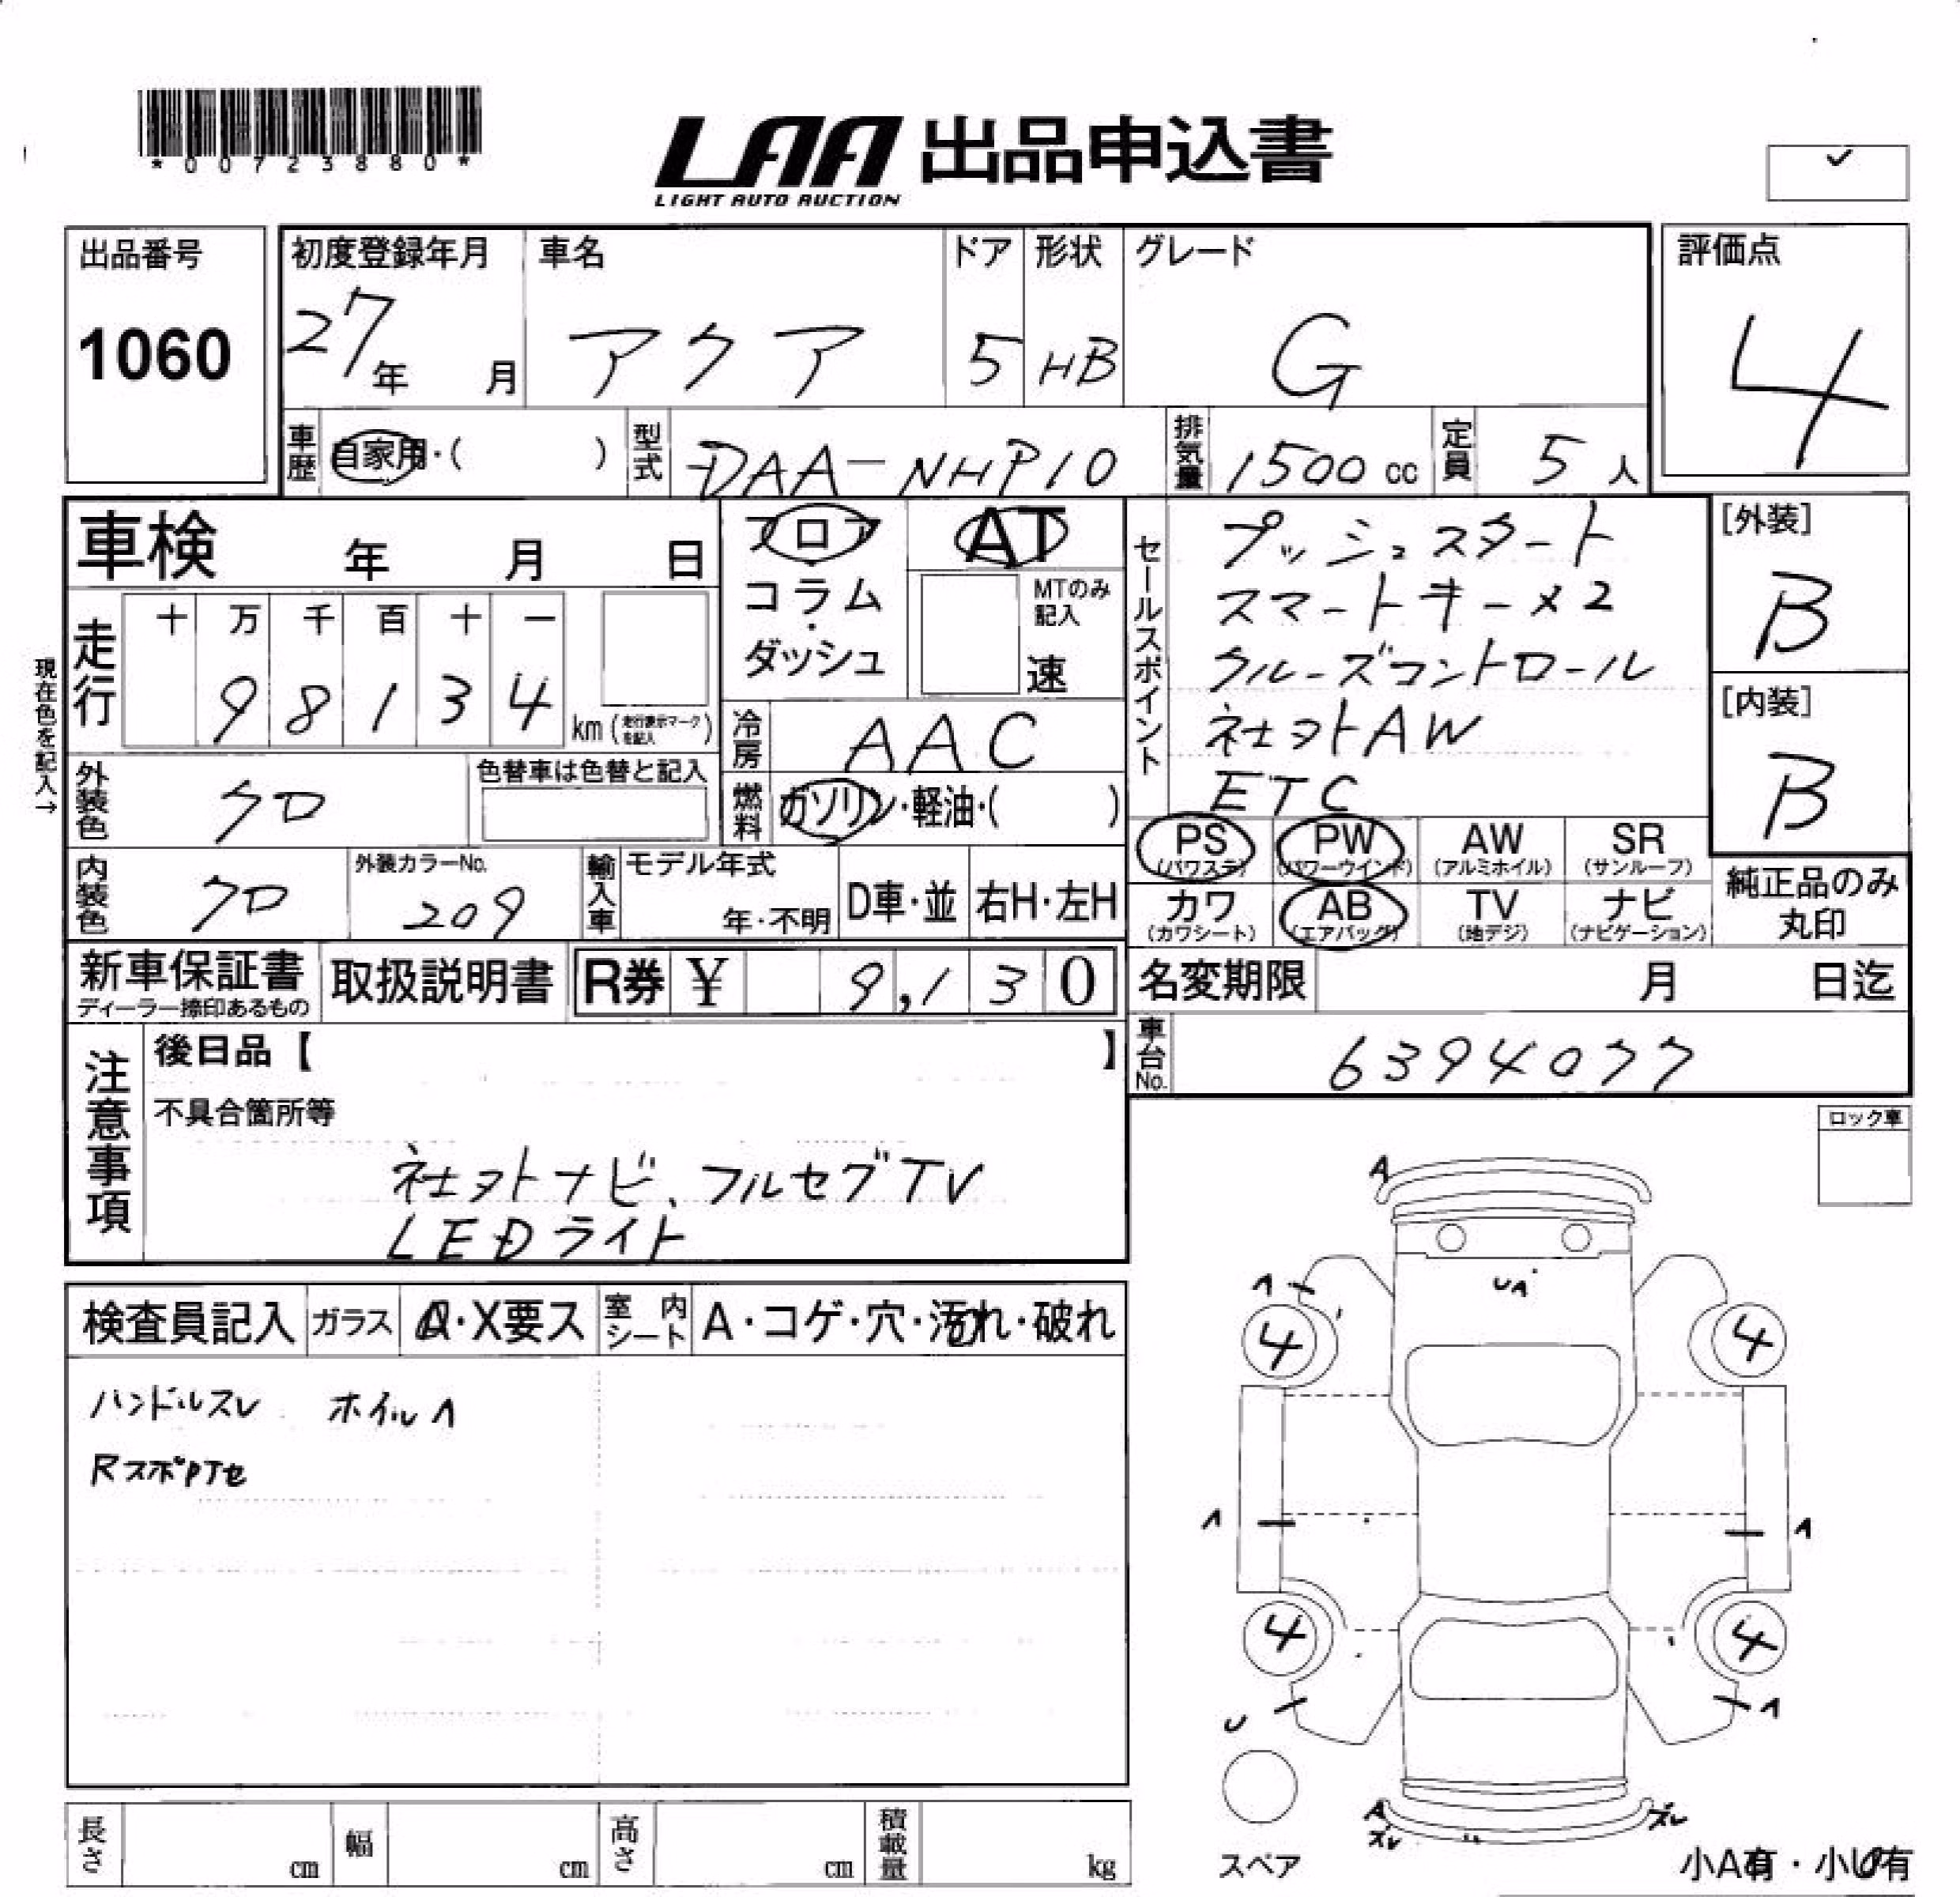 *00723880*
LAA 出品申込書
LIGHT AUTO AUCTION
出品番号
1060
初度登録年月
27年 月
車名
アクア
ドア
5
形状
HB
グレード
G
評価点
4
車歴
自家用・( )
型式
DAA-NHP10
排気量
1500 cc
定員
5 人
車検 年 月 日
フロア
コラム
・
ダッシュ
AT
MTのみ
記入
速
セールスポイント
プッシュスタート
スマートキー×2
クルーズコントロール
社外AW
ETC
[外装]
B
[内装]
B
現在色を記入→
走行
十 万 千 百 十 一
9 8 1 3 4
km (走行表示マークを記入)
冷房
AAC
外装色
クロ
色替車は色替と記入
燃料
ガソリン・軽油・( )
PS (パワステ)
PW (パワーウインド)
AW (アルミホイル)
SR (サンルーフ)
カワ (カワシート)
AB (エアバッグ)
TV (地デジ)
ナビ (ナビゲーション)
純正品のみ
丸印
内装色
クロ
外装カラーNo.
209
輸入車
モデル年式
年・不明
D車・並
右H・左H
新車保証書
ディーラー捺印あるもの
取扱説明書
R券 ¥ 9,130
名変期限 月 日迄
車台No.
6394077
注意事項
後日品【 】
不具合箇所等
社外ナビ、フルセグTV
LEDライト
ロック車
検査員記入
ガラス
A・X要ス
室内シート
A・コゲ・穴・汚れ・破れ
ハンドルスレ ホイルA
RスポPTセ
A
UA
A
4 4
A A
4 4
U A
A ズレ
ズレ
スペア
小A有・小U有
長さ cm
幅 cm
高さ cm
積載量 kg